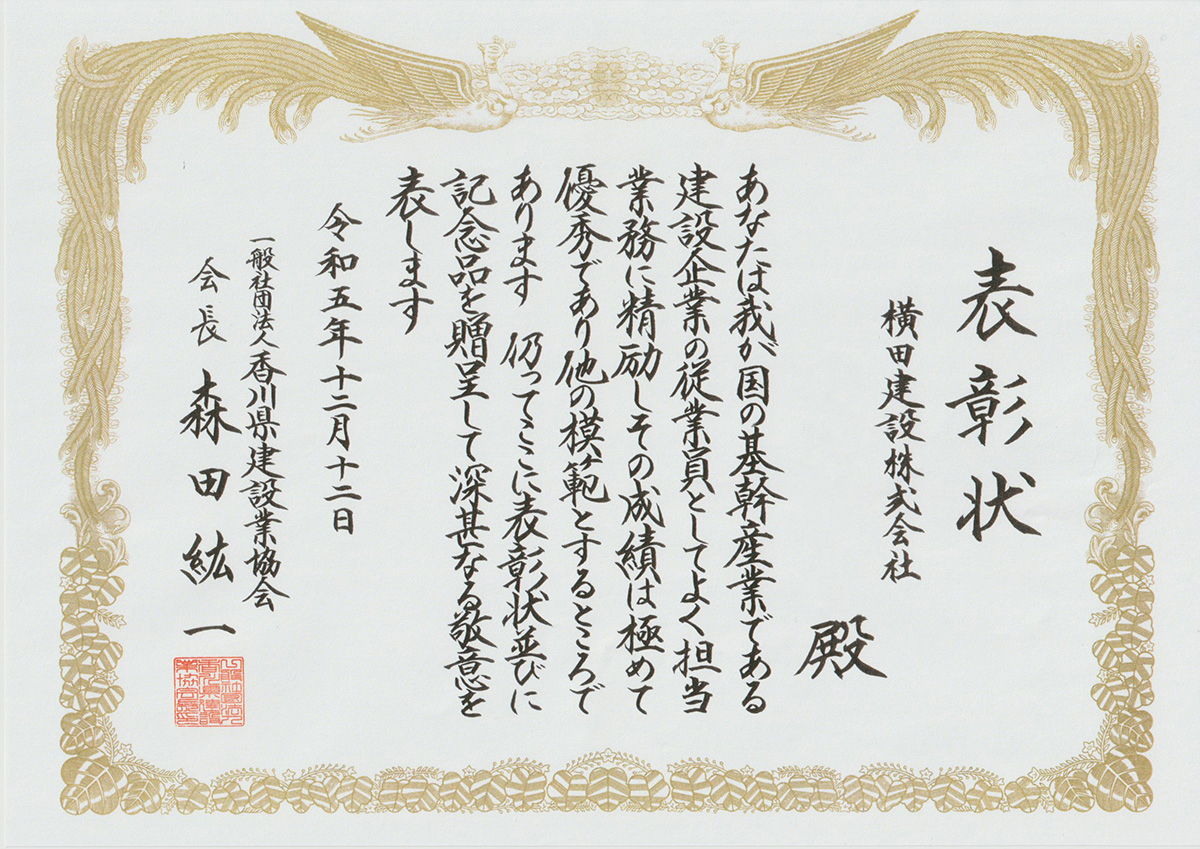 表彰状
横田建設株式会社
殿
あなたは我が国の基幹産業である
建設企業の従業員としてよく担当
業務に精励しその成績は極めて
優秀であり他の模範とするところで
あります 仍ってここに表彰状並びに
記念品を贈呈して深甚なる敬意を
表します
令和五年十二月十二日
一般社団法人香川県建設業協会
会長 森田紘一